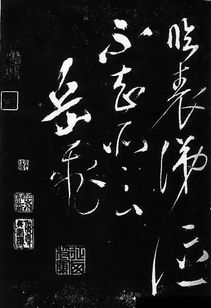 臨表涕泣
不知所云
岳飛